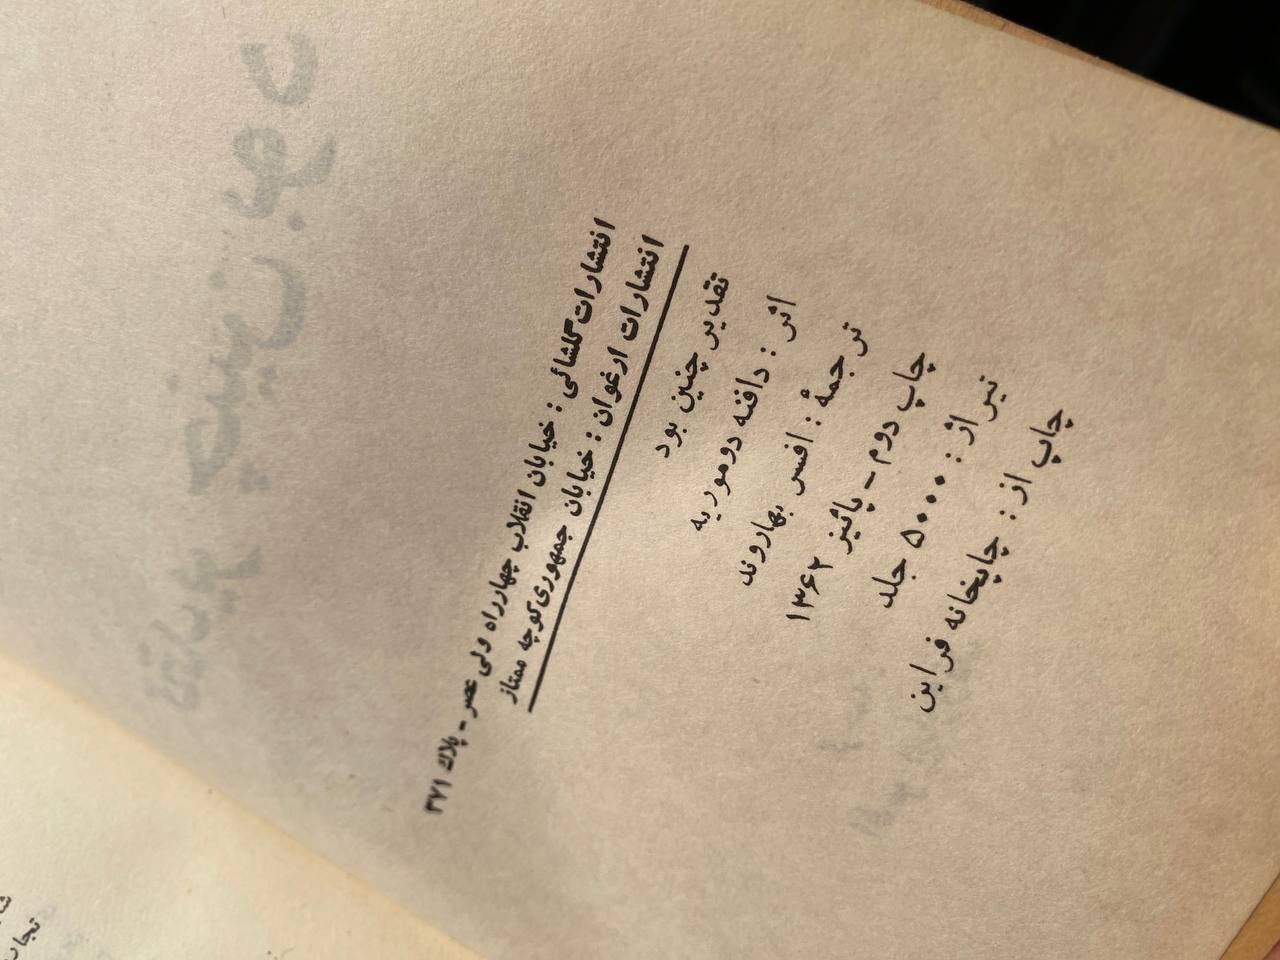 انتشارات گلشائی : خیابان انقلاب چهارراه ولی عصر - پلاک ۳۷۱
انتشارات ارغوان : خیابان جمهوری کوچه ممتاز
تقدیر چنین بود
اثر : دافنه دوموریه
ترجمهٔ : افسر بهاروند
چاپ دوم - پائیز ۱۳۶۲
تیراژ : ۵۰۰۰ جلد
چاپ از : چاپخانه فراین